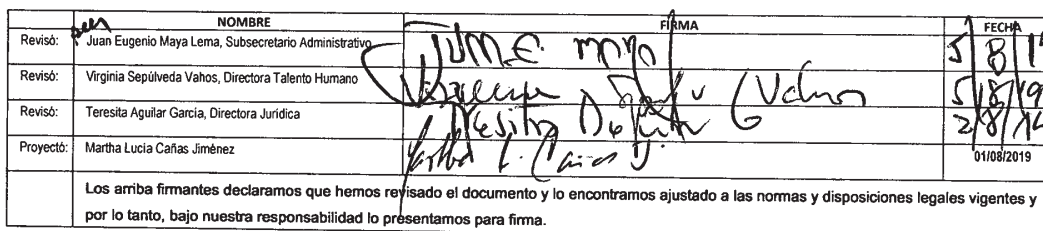 NOMBRE FIRMA FECHA
Revisó: Juan Eugenio Maya Lema, Subsecretario Administrativo 5/8/19
Revisó: Virginia Sepúlveda Vahos, Directora Talento Humano 5/8/19
Revisó: Teresita Aguilar García, Directora Jurídica 2/8/19
Proyectó: Martha Lucia Cañas Jiménez Martha L. Cañas J. 01/08/2019
Los arriba firmantes declaramos que hemos revisado el documento y lo encontramos ajustado a las normas y disposiciones legales vigentes y
por lo tanto, bajo nuestra responsabilidad lo presentamos para firma.